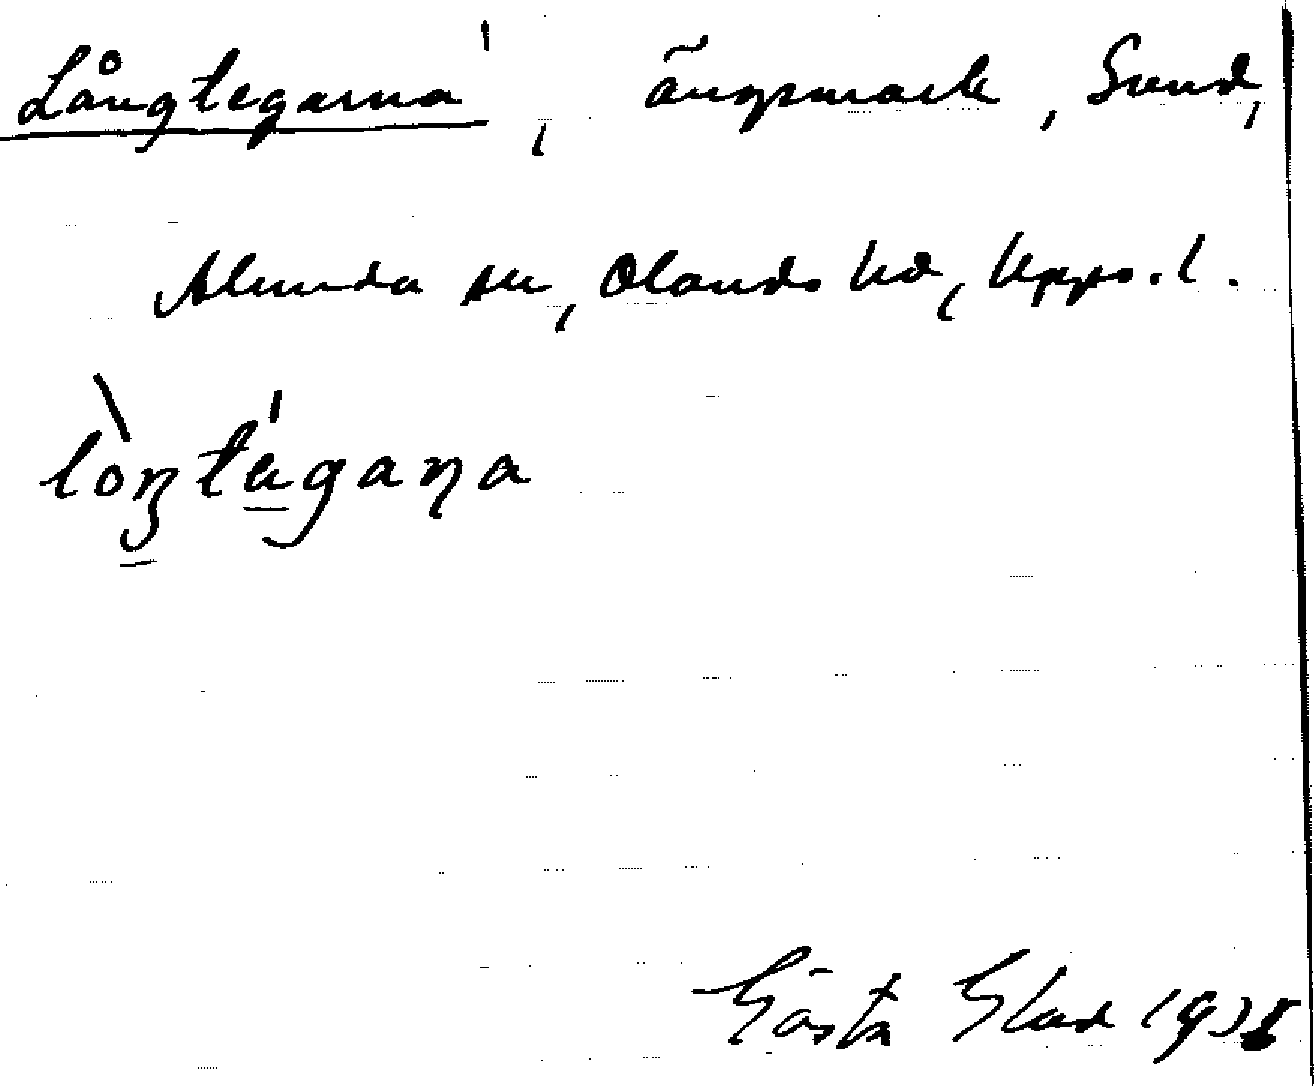 Långtegarna', ängsmark, Sund,
Alunda sn, Olands hd, Upps. l.
lòŋtágaɳa
Gösta Glad